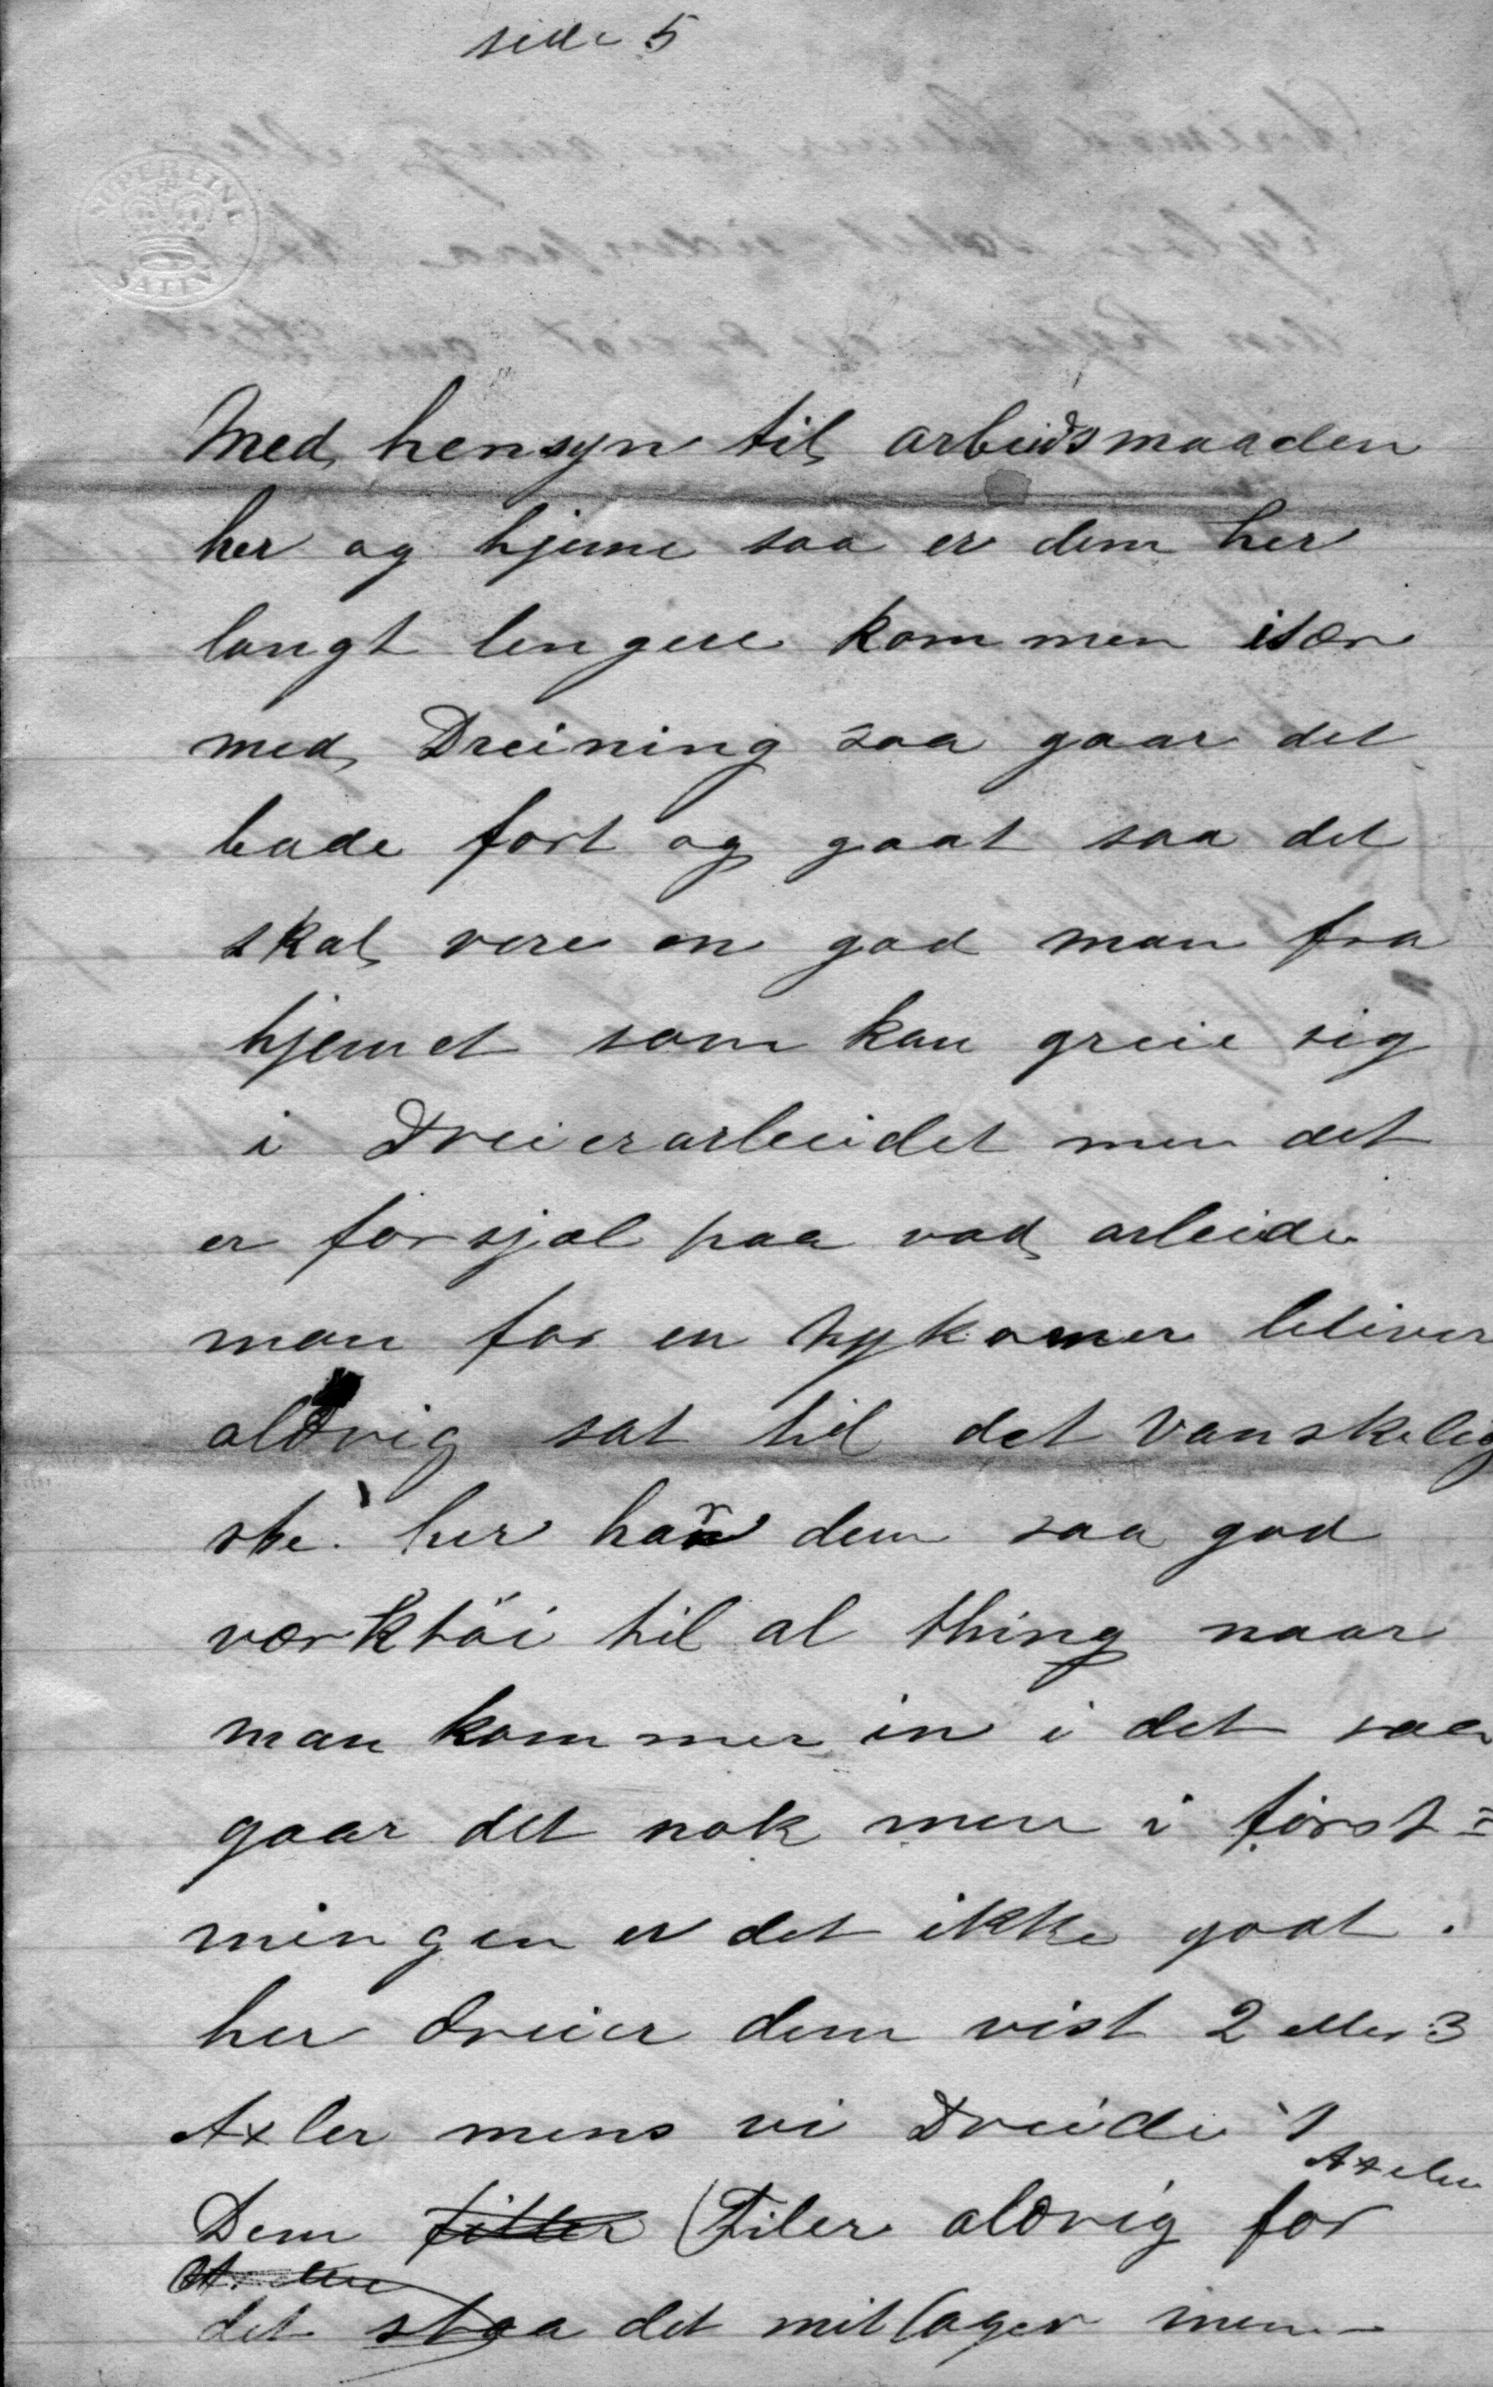 side 5
SUPERFINE
SATIN
Med hensyn til arbeidsmaaden
her og hjeme saa er dem her
langt lengere kommen især
med Dreining saa gaar det
bade fort og gaat saa det
skal vere en god man fra
hjemet som kan greie sig
i Dreierarbeidet men det
er forsjæl paa vad arbeide
man for en nykomer bliver
aldrig sat til det vanskelig
ste. her har dem saa god
værktöi til al thing naar
man kommer in i det saa
gaar det nok men i först=
ningen er det ikke godt.
her dreier dem vist 2 eller 3
Axler mens vi Dreide 1
Axelen
Dem fitter (Filer aldrig for
det staa det mit lager men